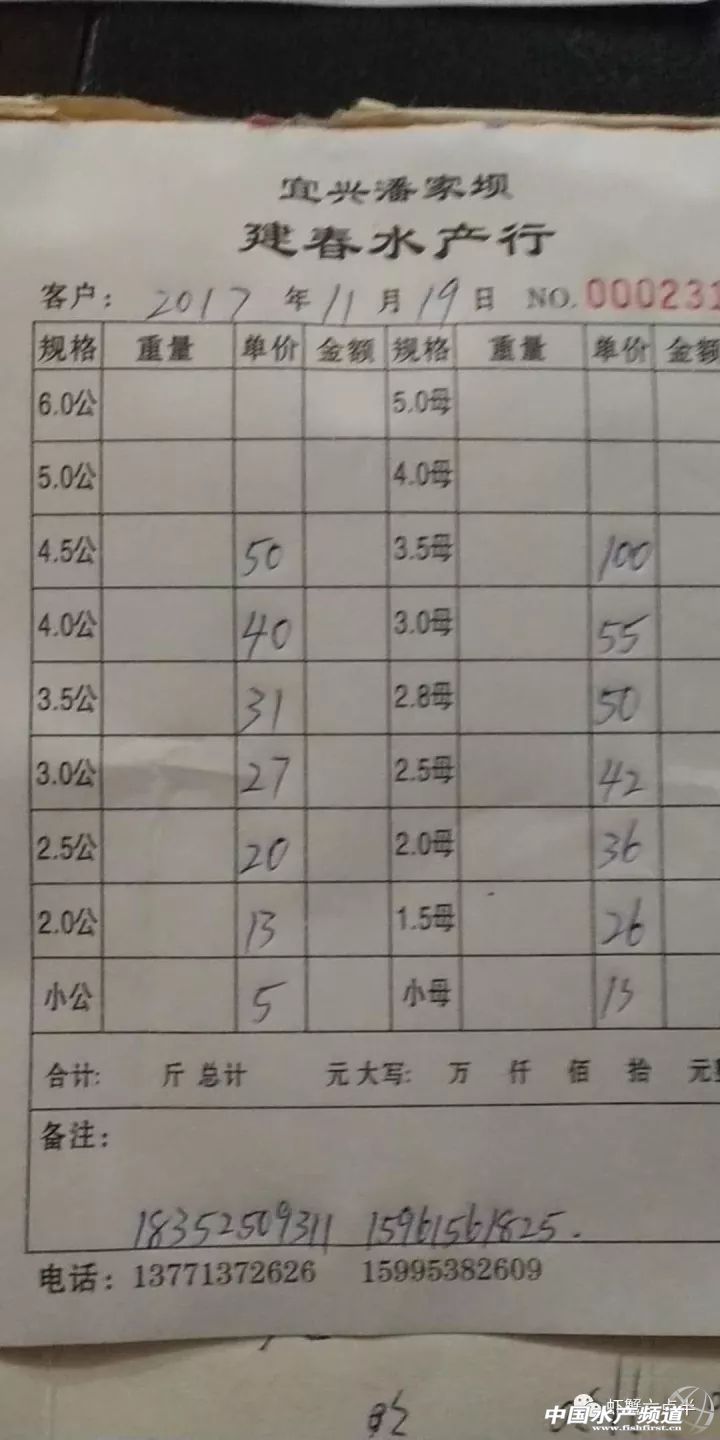 宜兴潘家坝
建春水产行
客户: 2017 年 11 月 19 日 NO. 000231
规格 重量 单价 金额 规格 重量 单价 金额
6.0公 5.0母
5.0公 4.0母
4.5公 50 3.5母 100
4.0公 40 3.0母 55
3.5公 31 2.8母 50
3.0公 27 2.5母 42
2.5公 20 2.0母 36
2.0公 13 1.5母 26
小公 5 小母
合计: 斤 总计 元 大写: 万 仟 佰 拾 元
备注:
18352509311 15961561825.
电话: 13771372626 15995382609
虾蟹六点半
中国水产频道
www.fishfirst.cn